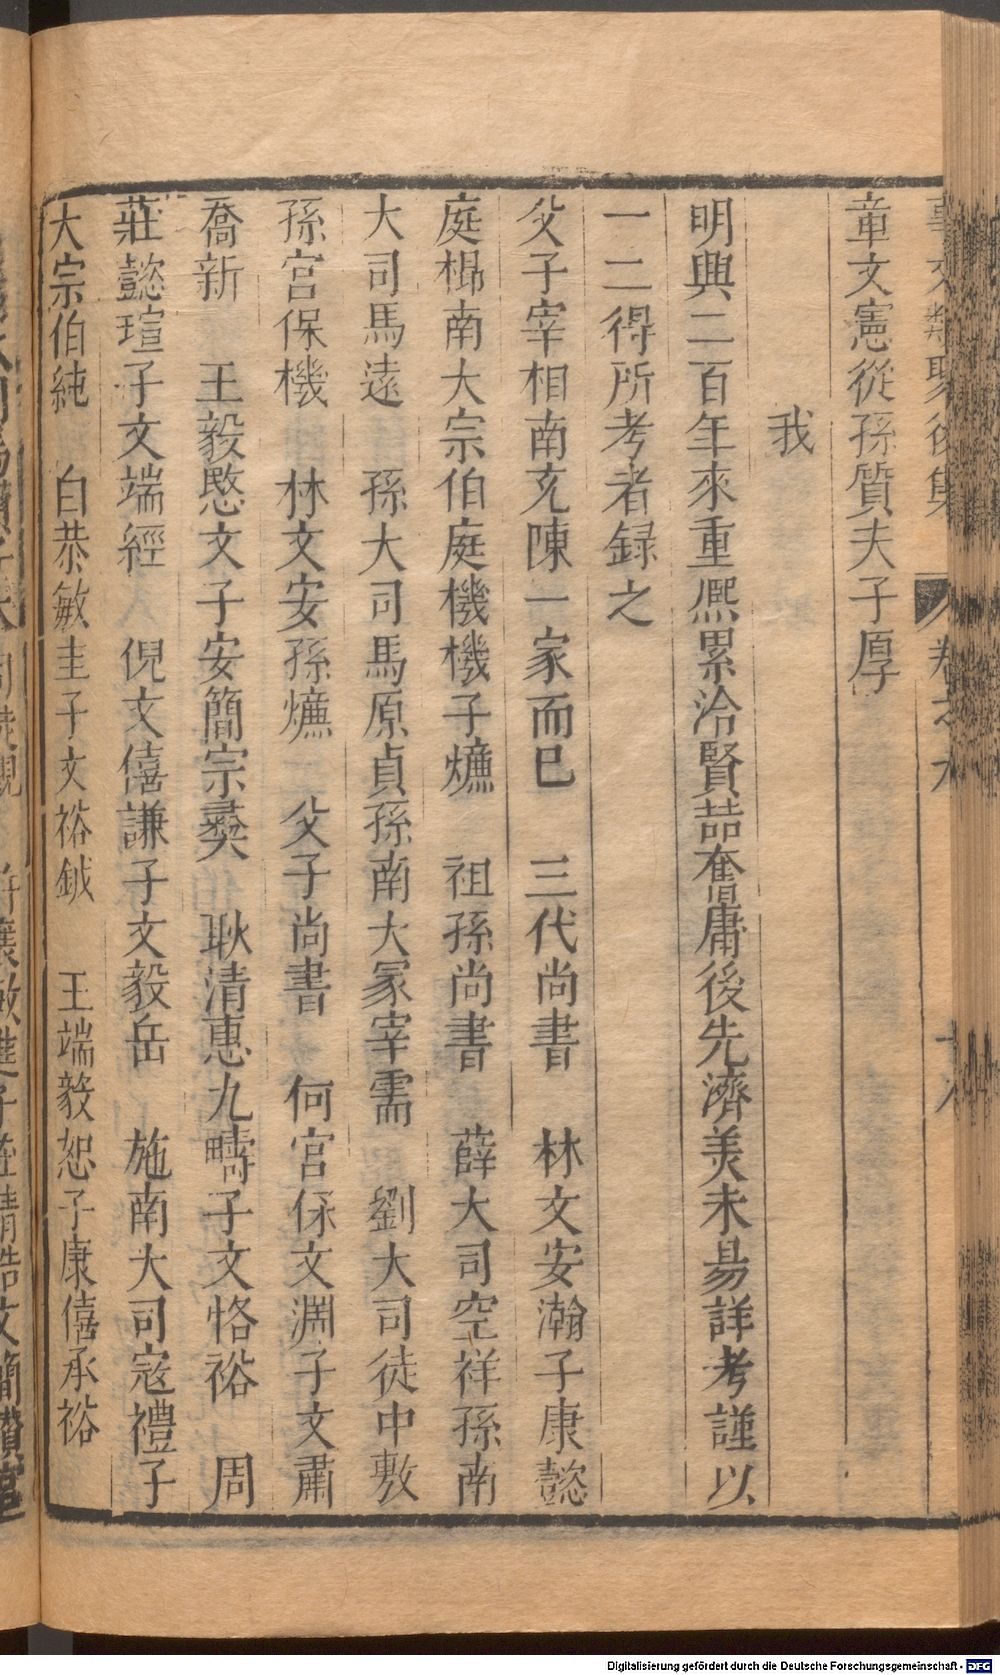 章文憲從孫質夫子厚
我
明興二百年來重熈累洽賢喆奮庸後先濟美未易詳考謹以
一二得所考者録之
父子宰相南充陳一家而已　三代尚書　林文安瀚子康懿
庭㭿南大宗伯庭機機子燫　祖孫尚書　薛大司空祥孫南
大司馬遠　孫大司馬原貞孫南大冢宰需　劉大司徒中敷
孫宫保機　林文安孫燫　父子尚書　何宫保文淵子文肅
喬新　王毅愍文子安簡宗彝　耿清惠九疇子文恪裕　周
莊懿瑄子文端經　倪文僖謙子文毅岳　施南大司寇禮子
大宗伯純　白恭敏圭子文裕鉞　王端毅恕子康僖承裕
Digitalisierung gefördert durch die Deutsche Forschungsgemeinschaft - DFG